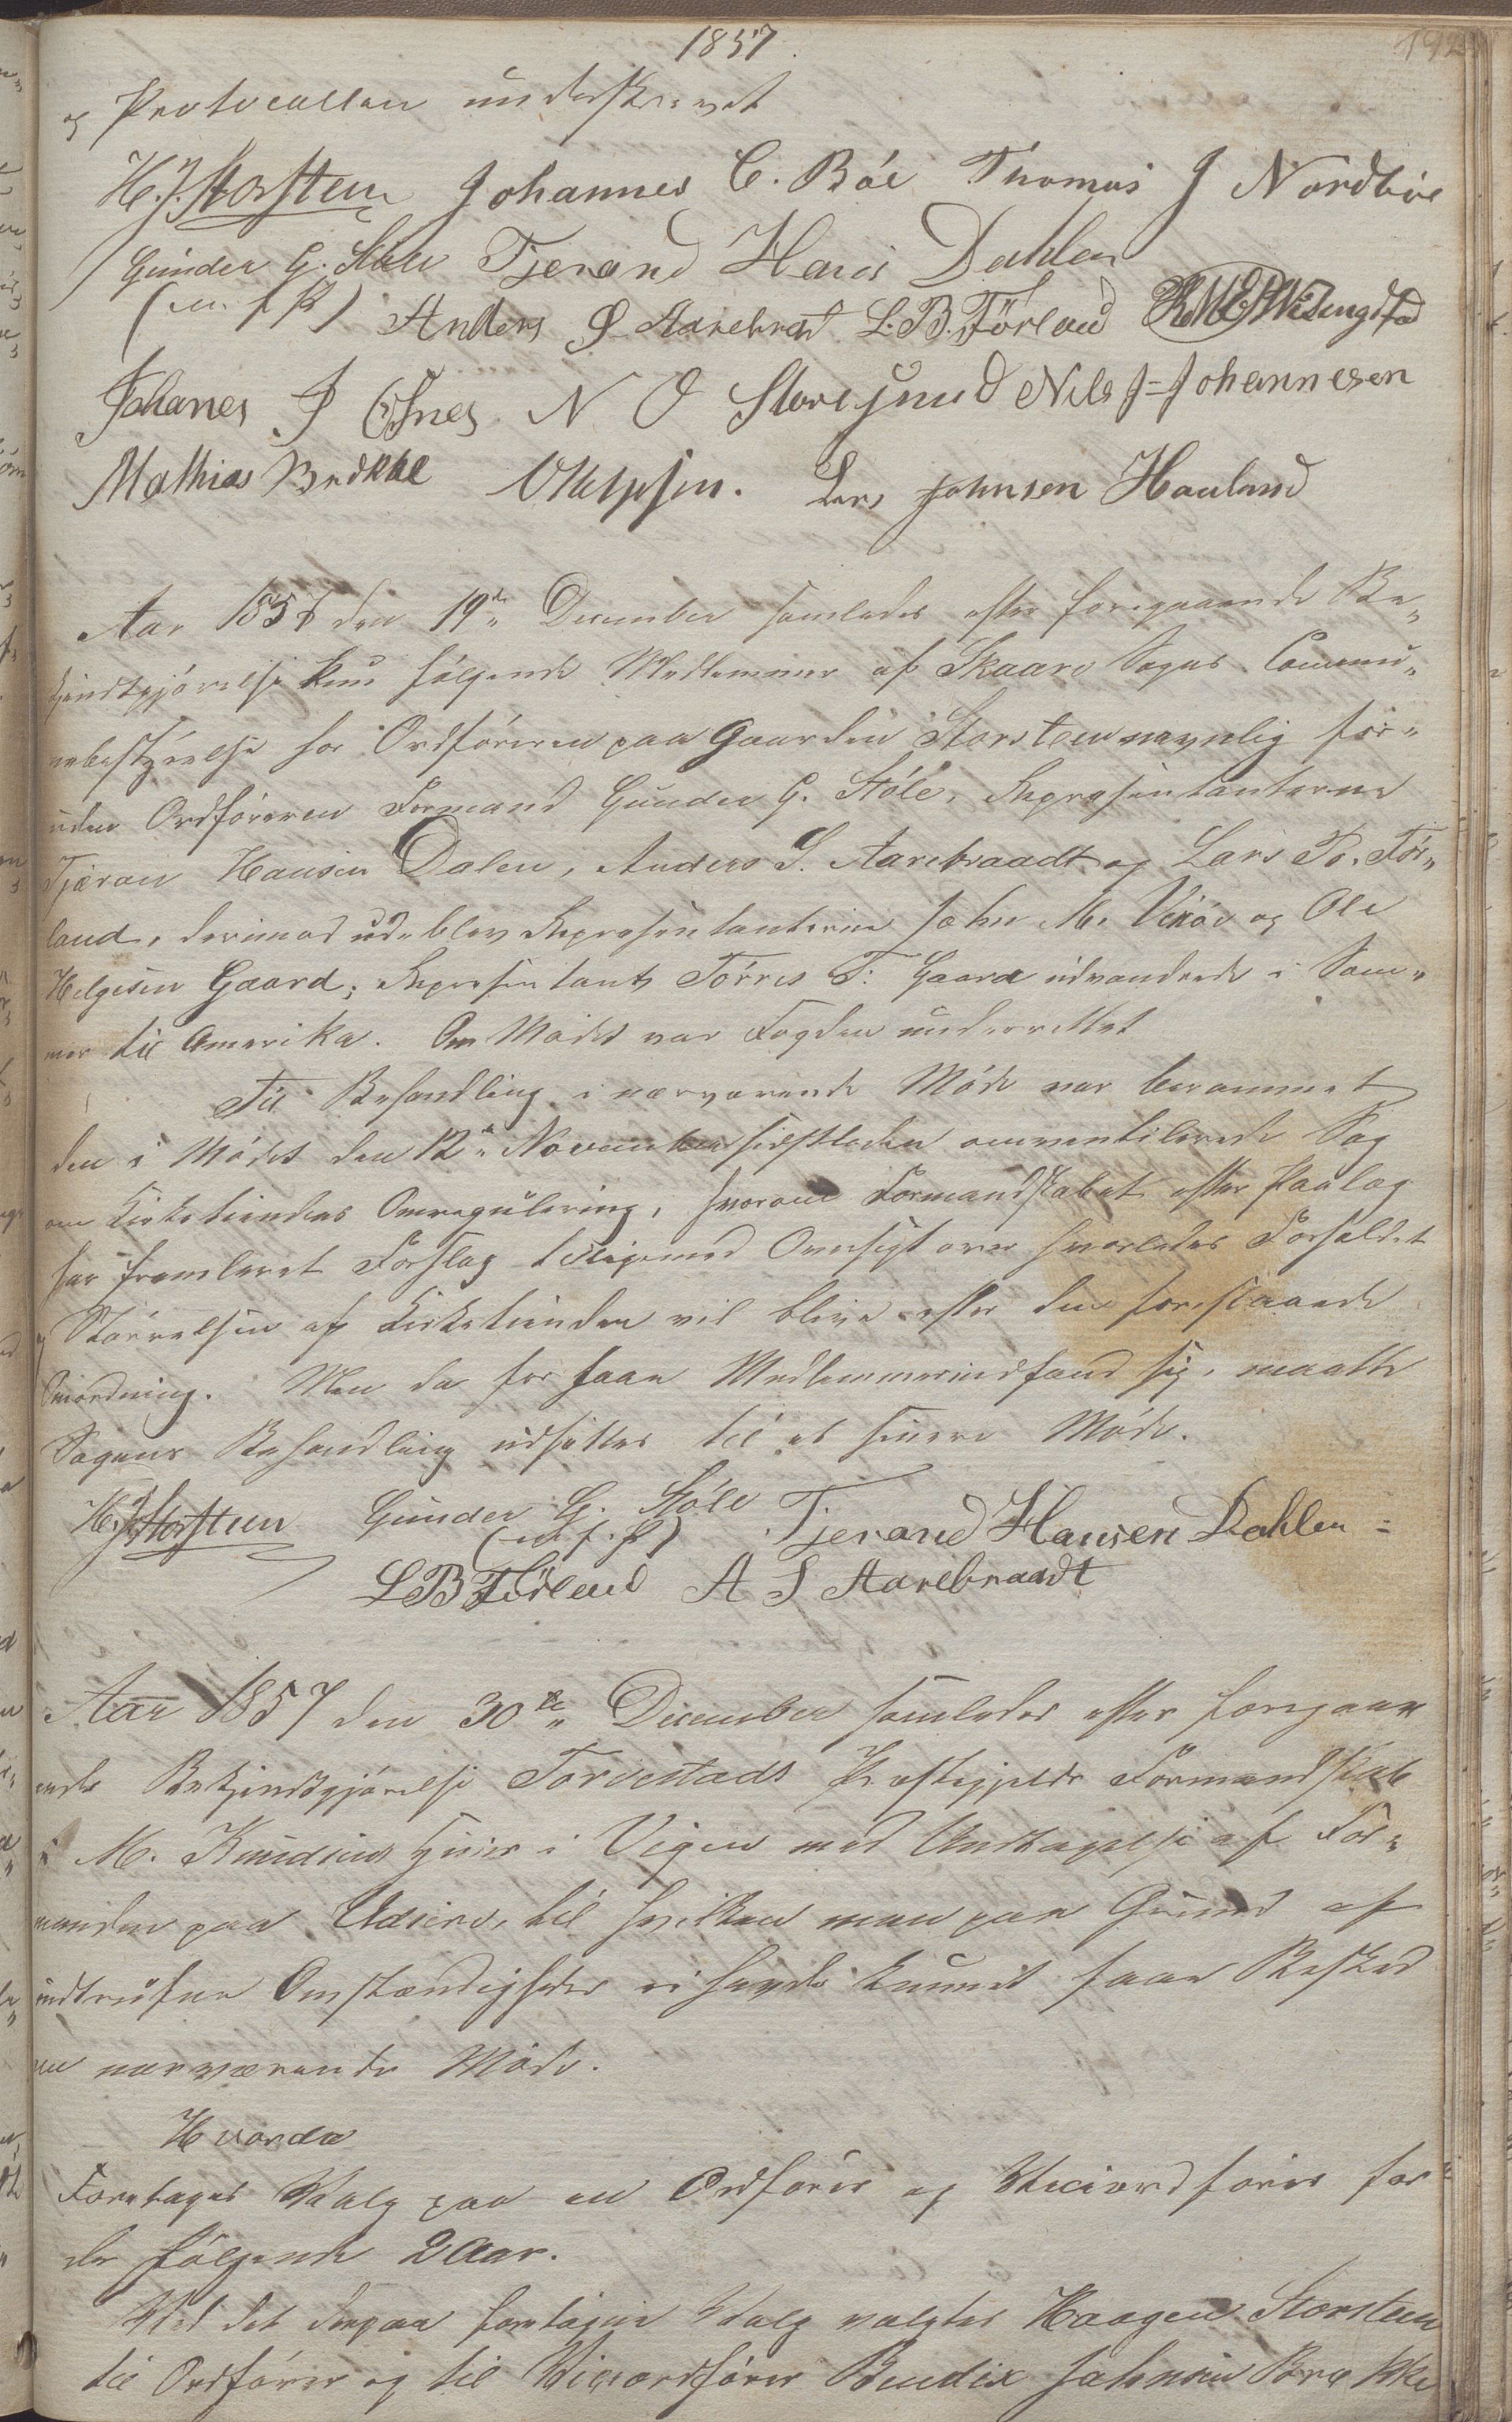 1857.
192
og Protocollen underskrevet
H. J. Storsten Johannes C. Böe Thomas J Nordböe
Gunder G. Stöle Tjerand Hans Dahlen
(m. f. P) Anders S Aarebrat L. B. Förland
Johanes J Gisnes N O Storesund Nils J= Johannesen
Mathias Bredkke Lars Johnsen Hauland
Aar 1857 den 19de December samledes efter foregaaende Be„
kjendtgjörelse kun fölgende Medlemmer af Skaare Sogns Commu„
nebestyrelse hos Ordföreren paa Gaarden Storsten navnlig for„
uden Ordföreren Formand Gunder G. Stöle, Repræsentanterne
Tjæran Hansen Dalen, Anders S. Aarebraadt og Lars B. För„
land, derimod udeblev Repræsentanterne John M. Viköe og Ole
Helgesen Gaard; Repræsentant Törres T. Gaard udvandrede i Som„
mer til Amerika. Om Mödet var Fogden underrettet
Til Behandling i nærværende Möde var berammet
den i Mödet den 12te November sidstleden omventilerede Sag
om Kirketiendens Omregulering, hvorom Formandskabet efter Paalag
har fremlevert Forslag tilligemed Oversigt over hvorledes Forholdet
og Störrelsen af Kirketienden vil blive efter den forestaaende
Omordning. Men da for faae Medlemmer indfand sig, maatte
Sagens Behandling udsættes til et senere Möde.
H. J. Storsten Gunder G. Stöle Tjerand Hansen Dahlen =
(m. f. P)
L B Förland A S Aarebraadt
Aar 1857 den 30te December samledes efter foregaa„
ende Bekjendtgjörelse Torvestads Præstegjelds Formandskab
i M. Knudsens Huus i Vigen med Undtagelse af For„
manden paa Udsire, til hvilken man paa Grund af
indtrufne Omstændigheder ei havde kunnet faae Besked
om nærværende Möde.
Hvorda
Foretages Valg paa en Ordförer og Viceordförer for
de fölgende 2 Aar.
Ved det derpaa foretagne Valg valgtes Haagen Storsteen
til Ordförer og til Viceordförer Bendix Johnsen Brække